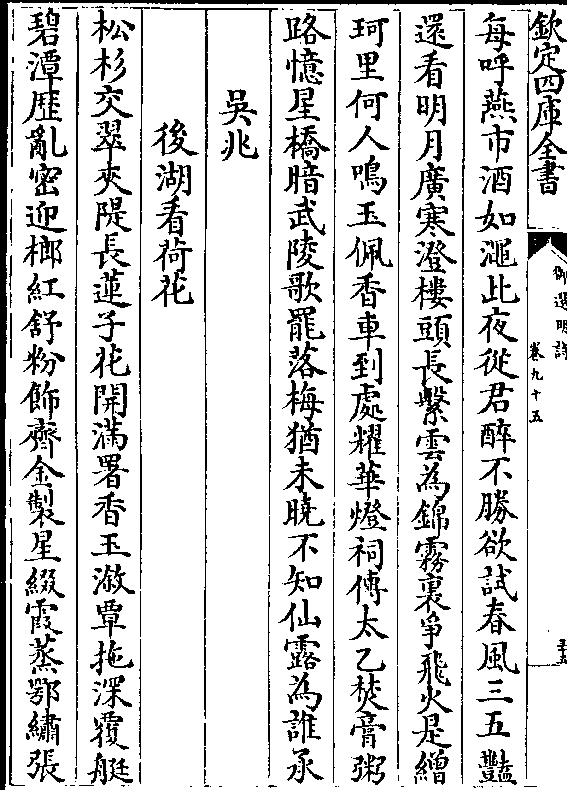 欽定四庫全書
御選明詩
卷九十五
每呼燕市酒如澠此夜從君醉不勝欲試春風三五豔
還看明月廣寒澄樓頭長繫雲為錦霧裏爭飛火是繒
珂里何人鳴玉佩香車到處耀華燈祠傳太乙焚膏粥
路憶星橋暗武陵歌罷落梅猶未曉不知仙露為誰承
吳兆
後湖看荷花
松杉交翠夾隄長蓮子花開滿署香玉溆覃拖深覆艇
碧潭歷亂密迎榔紅舒粉飾齊金製星綴霞蒸鄂繡張